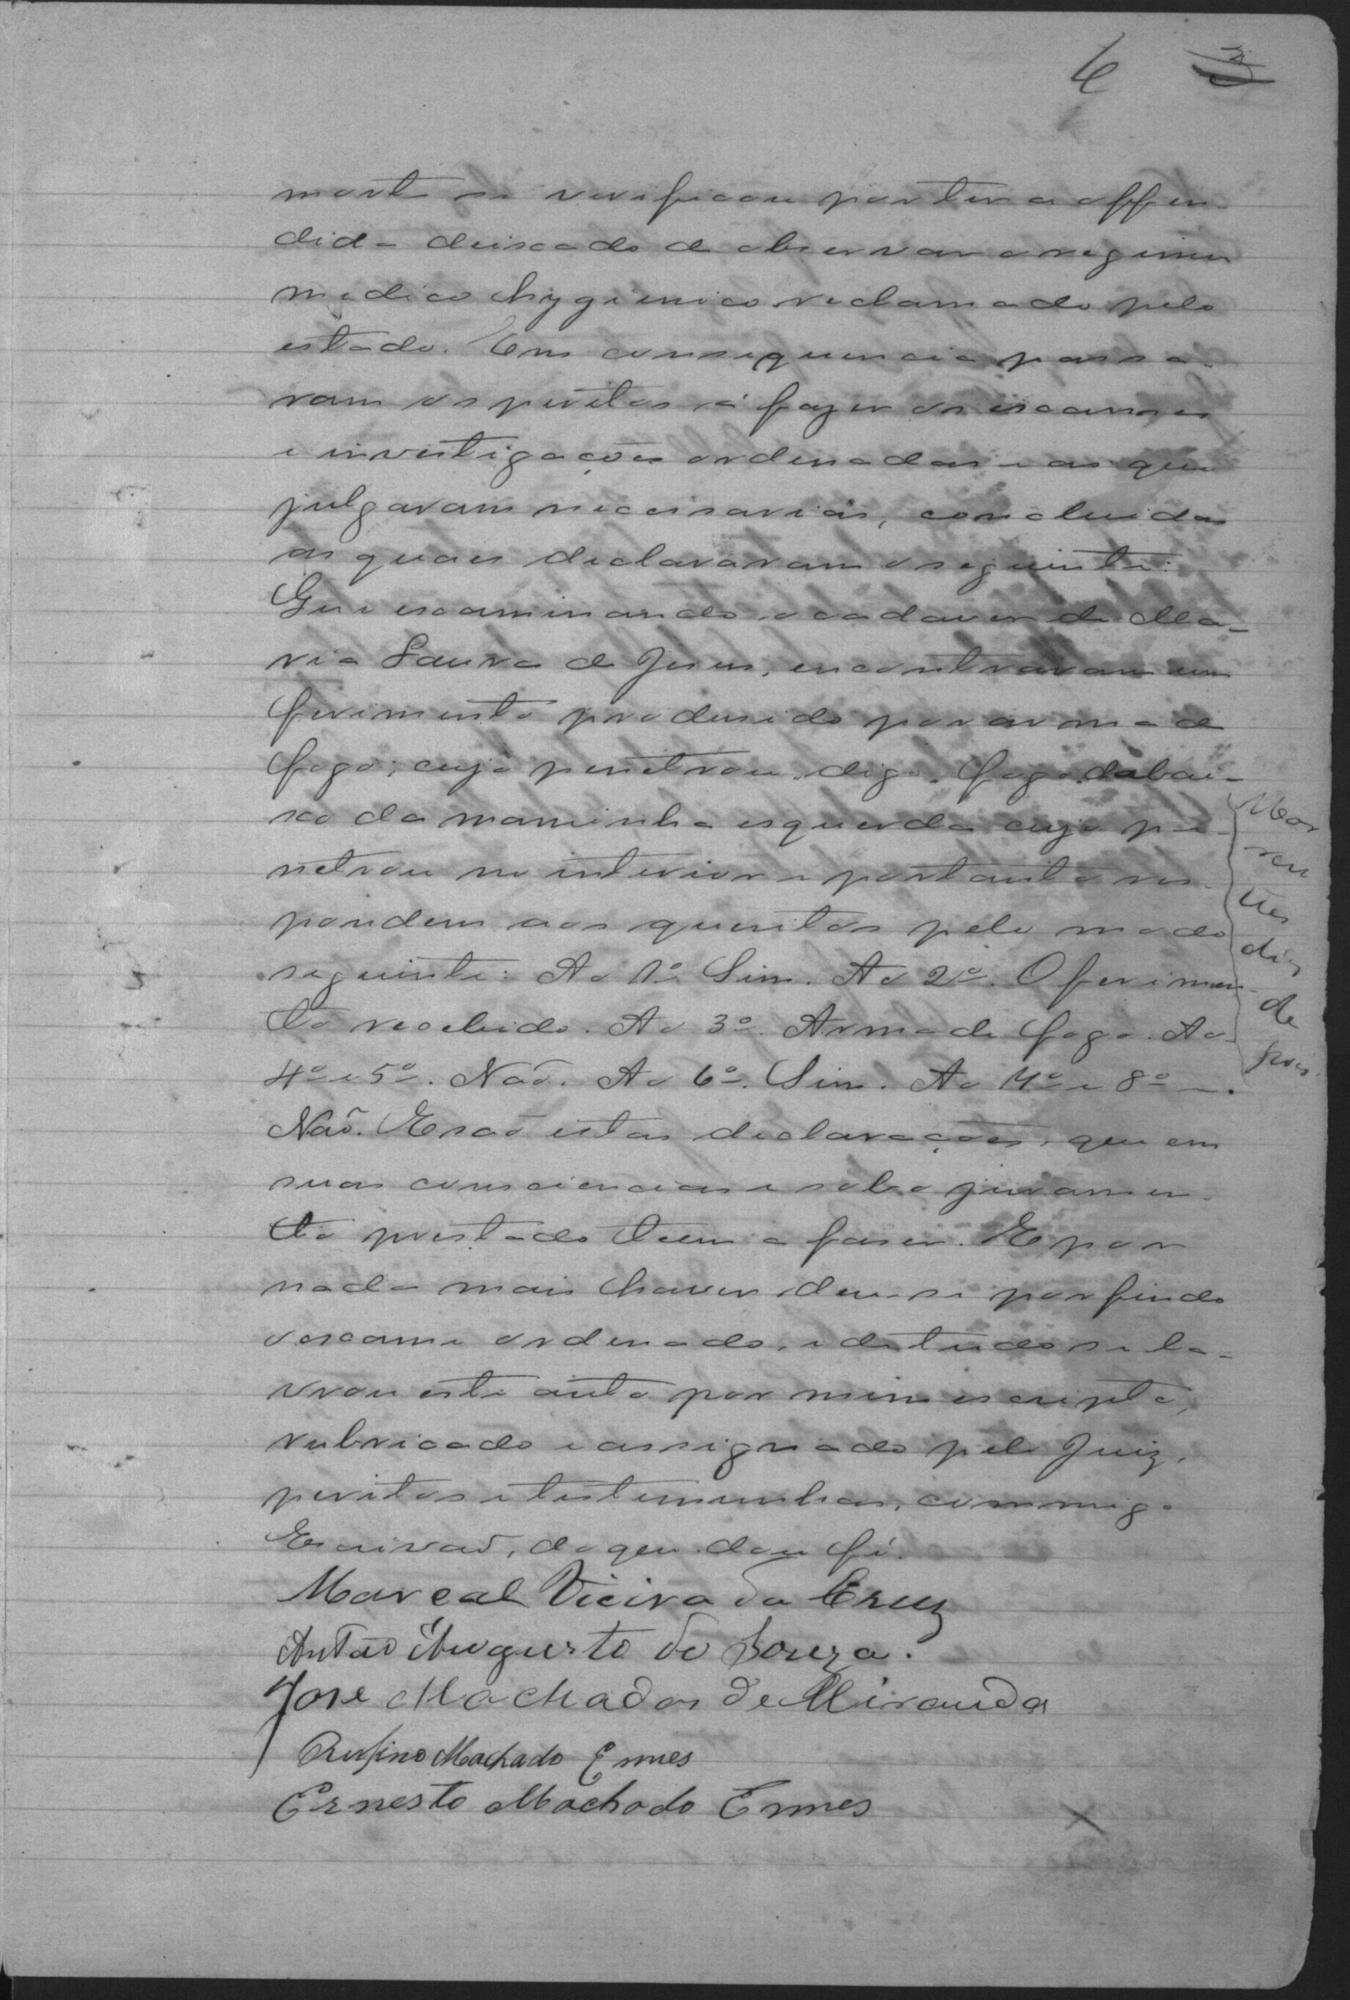 6 3
morte se verificou por ter a offen-
dida deixado de observar o regimen
medico hygienico reclamado pelo
estado. Em consequencia passa-
ram os peritos á fazer os exames
e investigações ordenadas e as que
julgavam necessarias, concluidas
as quaes declararam o seguinte:
Que examinando o cadaver de Ma-
ria Laura de Jesus, encontraram um
ferimento produsido por arma de
fogo, cujo penetrou, digo, fogo, dabai-
xo da maminha esquerda cujo pe-
netrou no interior e portanto res-
pondem aos quesitos pelo modo
seguinte: Ao 1º Sim. Ao 2º. O ferimen-
to recebido. Ao 3º. Arma de fogo. Ao
4º e 5º. Não. Ao 6º. Sim. Ao 7º e 8º
Não. E são estas declarações, que em
suas consciencias e sob o juramen-
to prestado teem a faser. E por
nada mais haver deu-se por findo
o exame ordenado, e de tudo se la-
vrou este auto por mim escripto,
rubricado e assignado pelo Juiz,
peritos e testemunhas, commigo
Escrivão, do que dou fé.
Marcal Vieira da Cruz
Antão Augusto de Souza.
Jose Machados de Miranda
Rufino Machado Ennes
Ernesto Machado Ennes
Mor
reu
tres
dias
de
pois